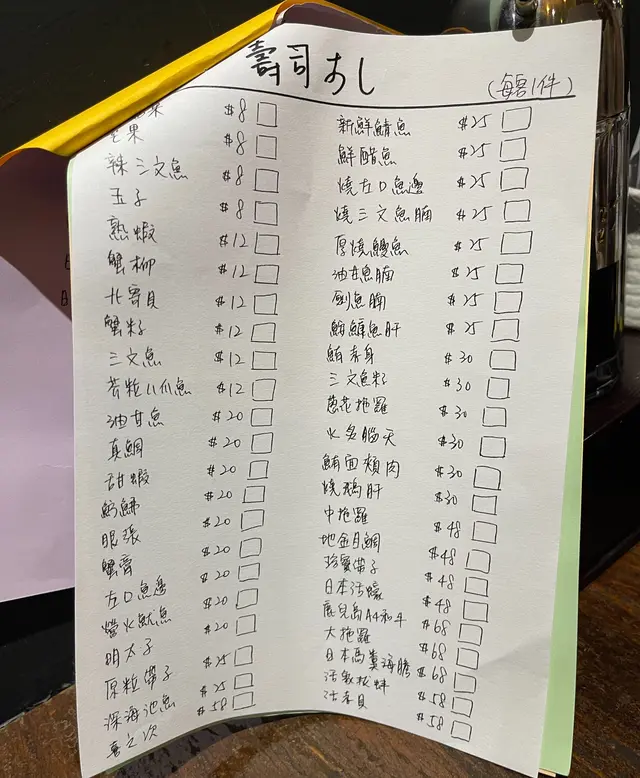 壽司 すし
(每客1件)
菜 $8
芒果 $8
辣三文魚 $8
玉子 $8
熟蝦 $12
蟹柳 $12
北寄貝 $12
蟹籽 $12
三文魚 $12
芥粒八爪魚 $12
油甘魚 $20
真鯛 $20
甜蝦 $20
$20
眼張 $20
蟹膏 $20
左口魚邊 $20
螢火魷魚 $20
明太子 $20
原粒帶子 $25
深海池魚 $25
喜之次 $58
新鮮鯖魚 $25
鮮醋魚 $25
燒左口魚邊 $25
燒三文魚腩 $25
厚燒鰻魚 $25
油甘魚腩 $25
劍魚腩 $25
鮟鱇魚肝 $25
鮪赤身 $30
三文魚籽 $30
葱花拖羅 $30
火炙腦天 $30
鮪面頰肉 $30
燒鵝肝 $30
中拖羅 $48
地金目鯛 $48
珍寶帶子 $48
日本活蠔 $48
鹿兒島A4和牛 $68
大拖羅 $68
日本馬糞海膽 $68
活象拔蚌 $58
活赤貝 $58